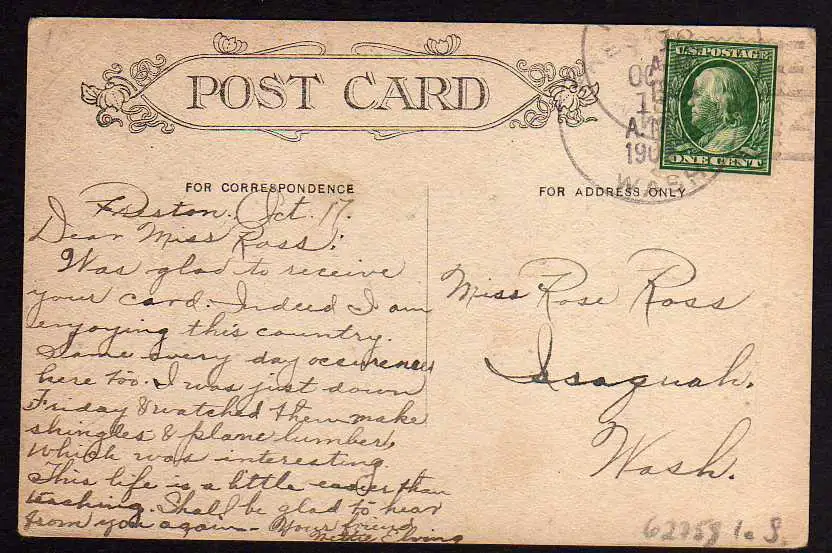 POST CARD
U.S. POSTAGE
ONE CENT
A.M.
WASH.
FOR CORRESPONDENCE
FOR ADDRESS ONLY
Preston. Oct. 17.
Dear Miss Ross:
Was glad to receive
your card. Indeed I am
enjoying this country.
Same every day occurences
here too. I was just down
Friday & watched them make
shingles & plane lumber,
which was interesting.
This life is a little easier than
teaching. Shall be glad to hear
from you again - Your friend
Nettie
Miss Rose Ross
Issaquah.
Wash.
62758